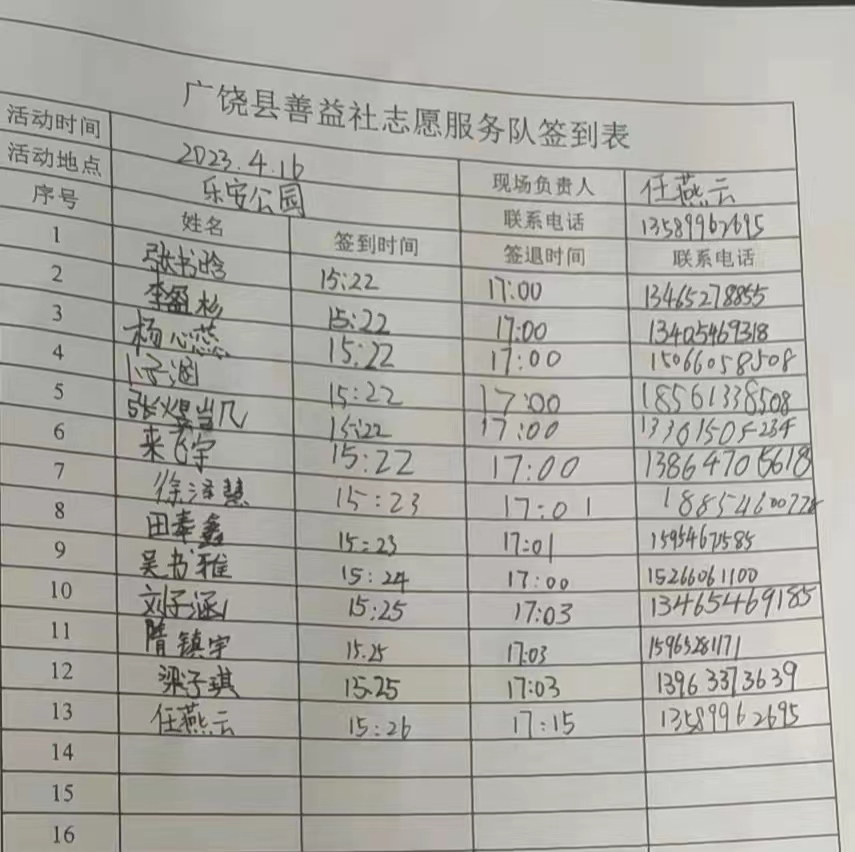 广饶县善益社志愿服务队签到表
活动时间 2023.4.16 现场负责人 任燕云
活动地点 乐安公园 联系电话 13589962695
序号 姓名 签到时间 签退时间 联系电话
1 张书晗 15:22 17:00 13465278855
2 李盈杉 15:22 17:00 13405469318
3 杨心蕊 15:22 17:00 15066058508
4 15:22 17:00 18561338508
5 15:22 17:00
6 来飞宇 15:22 17:00 13864705618
7 徐泽慧 15:23 17:01
8 田奉鑫 15:23 17:01 15954671585
9 吴书雅 15:24 17:00 15266061100
10 刘子涵 15:25 17:03 13465469185
11 隋镇宇 15.25 17:03 15965281171
12 梁子琪 15.25 17:03 13963373639
13 任燕云 15:26 17:15 13589962695
14
15
16